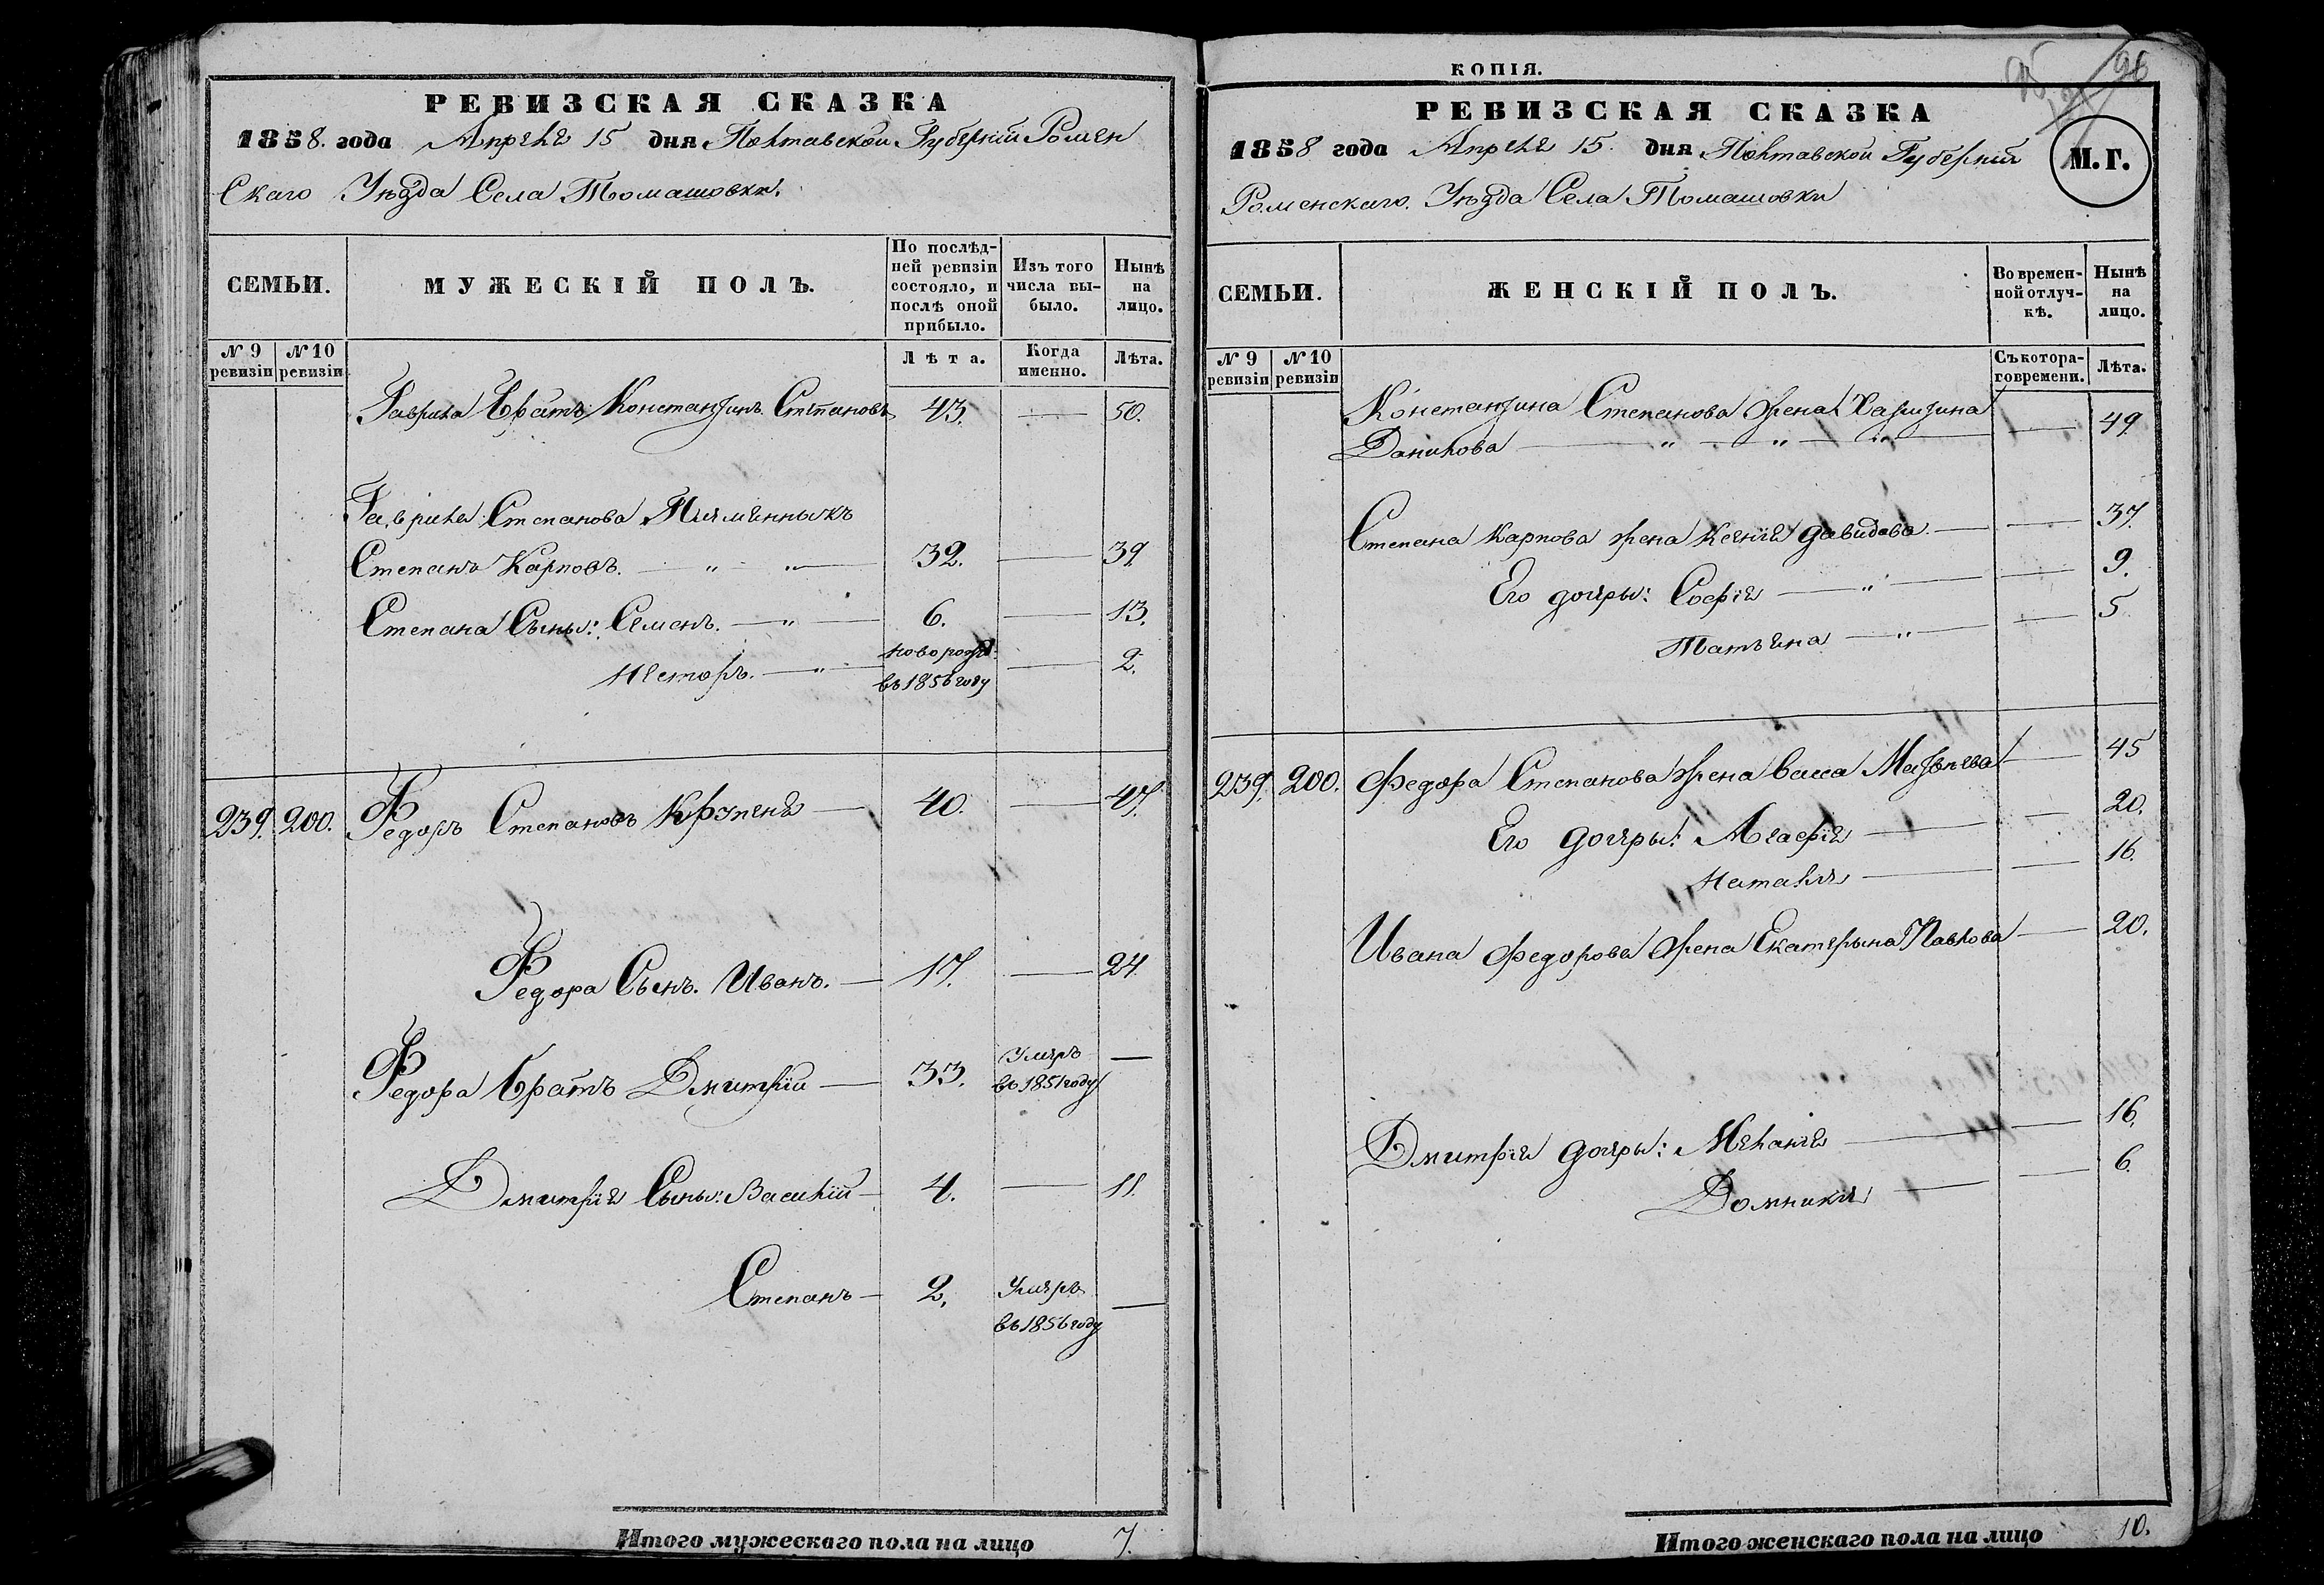 РЕВИЗСКАЯ СКАЗКА
1858. года Апреля 15 дня Полтавской Губерніи Ромен
Скаго Уѣзда Села Томашовки.
СЕМЬИ.
МУЖЕСКІЙ ПОЛЪ.
По послѣд-
ней ревизіи
состояло, и
послѣ оной
прибыло.
Изъ того
числа вы-
было.
Нынѣ
на
лицо.
№ 9
ревизіи
№ 10
ревизіи
Лѣта.
Когда
именно.
Лѣта.
Гаврила Братъ Константинъ Степановъ 43. — 50.
Гаврила Степанова Племянныкъ
Степанъ Карповъ. — „ „ — 32. — 39.
Степана Сыны: Семенъ. — „ — 6. — 13.
Несторъ. — „ — новорожд. — 2.
въ 1856 году
239. 200. Федоръ Степановъ — 40. — 47.
Федора Сынъ. Иванъ. — 17. — 24.
Федора Братъ Дмитрій — 33. Умеръ —
въ 1851 году
Дмитрія Сыны: Василій — 4. — 11.
Степанъ — 2. Умеръ —
въ 1856 году
Итого мужескаго пола на лицо 7.
КОПІЯ.
95
96
РЕВИЗСКАЯ СКАЗКА
1858 года Апреля 15. дня Полтавской Губерніи
М.Г.
Роменскаго. Уѣзда Села Томашовки
СЕМЬИ.
ЖЕНСКІЙ ПОЛЪ.
Во времен-
ной отлуч-
кѣ.
Нынѣ
на
лицо.
№ 9
ревизіи
№ 10
ревизіи
Съ котора-
го времени.
Лѣта.
Константина Степанова жена Харитина
Данилова — „ — „ — „ — — 49
Степана Карпова жена Ксенія Давидова. — — 37.
Его дочеры: Софія — „ — — 9.
Татьяна — „ — — 5
239. 200. Федора Степанова жена Васса Матвѣева — 45
Его дочеры: Агафія — — 20.
Наталія — — 16.
Ивана Федорова жена Екатерына Павлова — 20.
Дмитрія дочеры: Меланія — — 16.
Домникія — — 6.
Итого женскаго пола на лицо 10.